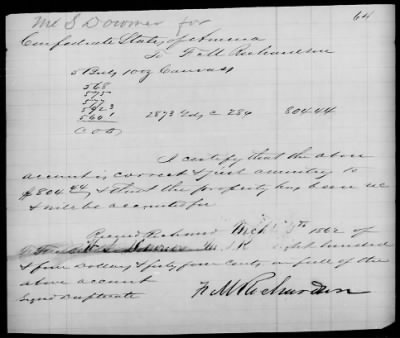 64
Mr S Downer for
Confederate States of America
To F M Richardson
5 Bales 10 oz Canvas
568
575
567
562 3
600 1
2873 Yds @ 28¢ 804.44
I certify that the above
account is correct & just amounting to
$804.44 & that the property has been
& will be accounted for
Recd Richmond Mch 1862 of
W S Downer M.S.K. Eight hundred
& four Dollars & forty four Cents in full of the
above account
Signed Duplicate
F M Richardson